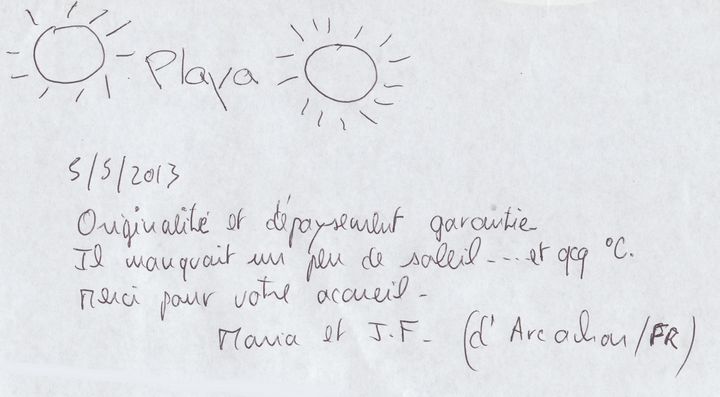 Playa
5/5/2013
Originalité et dépaysement garantie
Il manquait un peu de soleil---- et qcq °C.
Merci pour votre accueil -
Maria et J.F. - (d'Arcachon/FR)